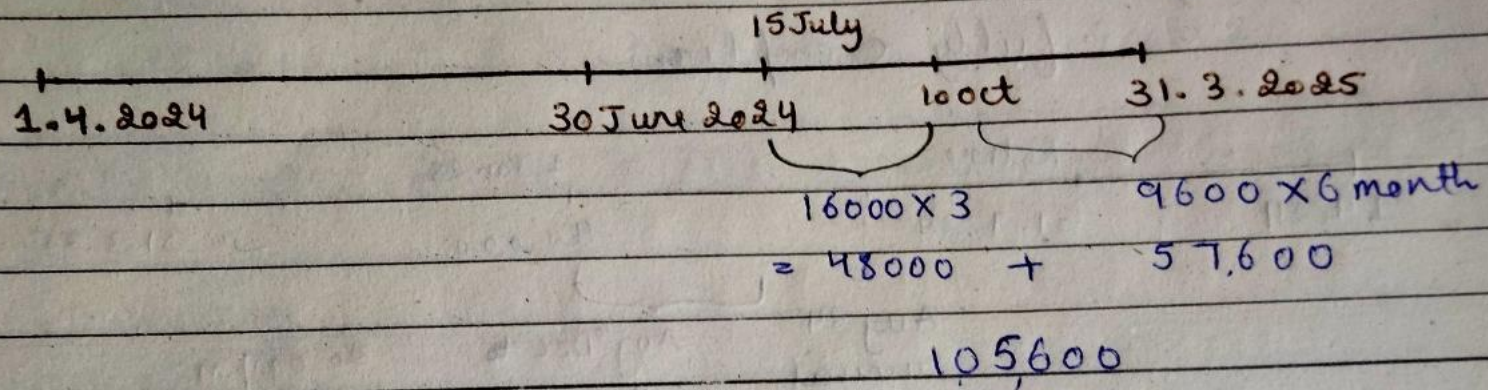 15 July
1.4.2024 30 June 2024 10 oct 31.3.2025
16000 × 3 9600 × 6 month
= 48000 + 57,600
105,600